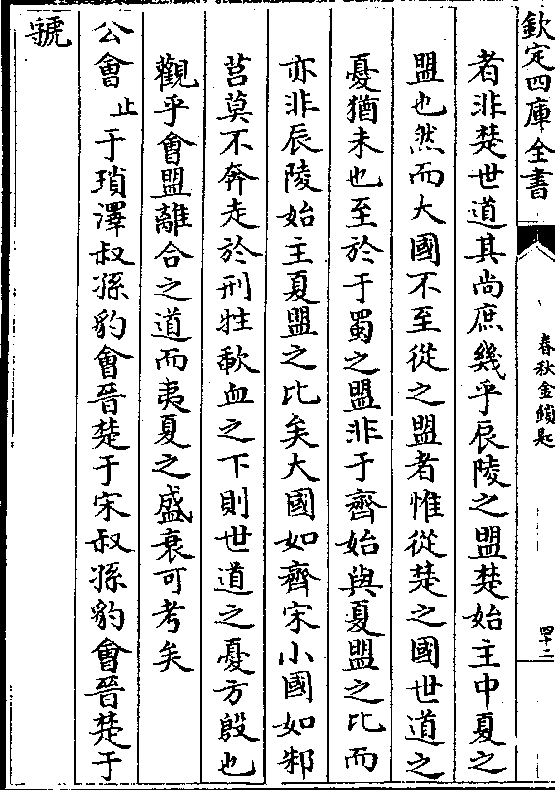 欽定四庫全書
春秋金鎖匙
四十二
者非楚世道其尚庶幾乎辰陵之盟楚始主中夏之
盟也然而大國不至從之盟者惟從楚之國世道之
憂猶未也至於于蜀之盟非于齊始與夏盟之比而
亦非辰陵始主夏盟之比矣大國如齊宋小國如邾
莒莫不奔走於刑牲歃血之下則世道之憂方殷也
觀乎會盟離合之道而夷夏之盛衰可考矣
公會止于瑣澤叔孫豹會晉楚于宋叔孫豹會晉楚于
虢